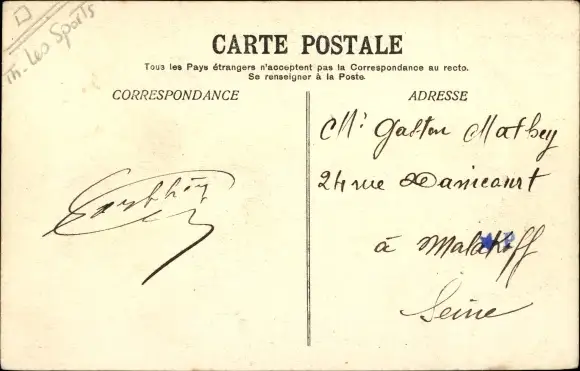 Th. Les Sports
CARTE POSTALE
Tous les Pays étrangers n'acceptent pas la Correspondance au recto.
Se renseigner à la Poste.
CORRESPONDANCE
ADRESSE
Mr Gaston Mathey
24 rue Danicourt
à Malakoff
Seine